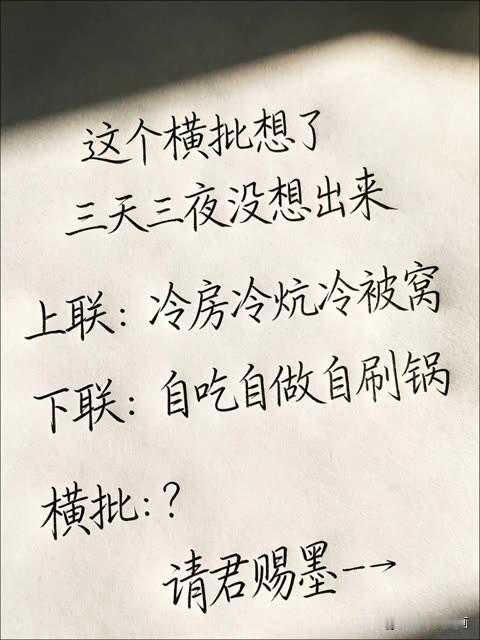 这个横批想了
三天三夜没想出来
上联：冷房冷炕冷被窝
下联：自吃自做自刷锅
横批：？
请君赐墨-→